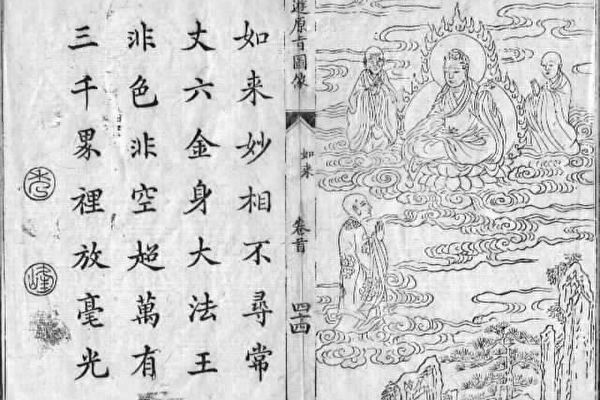 遊原旨圖像
如来
卷首
四十四
如来妙相不尋常
丈六金身大法王
非色非空超萬有
三千界裡放毫光
峰